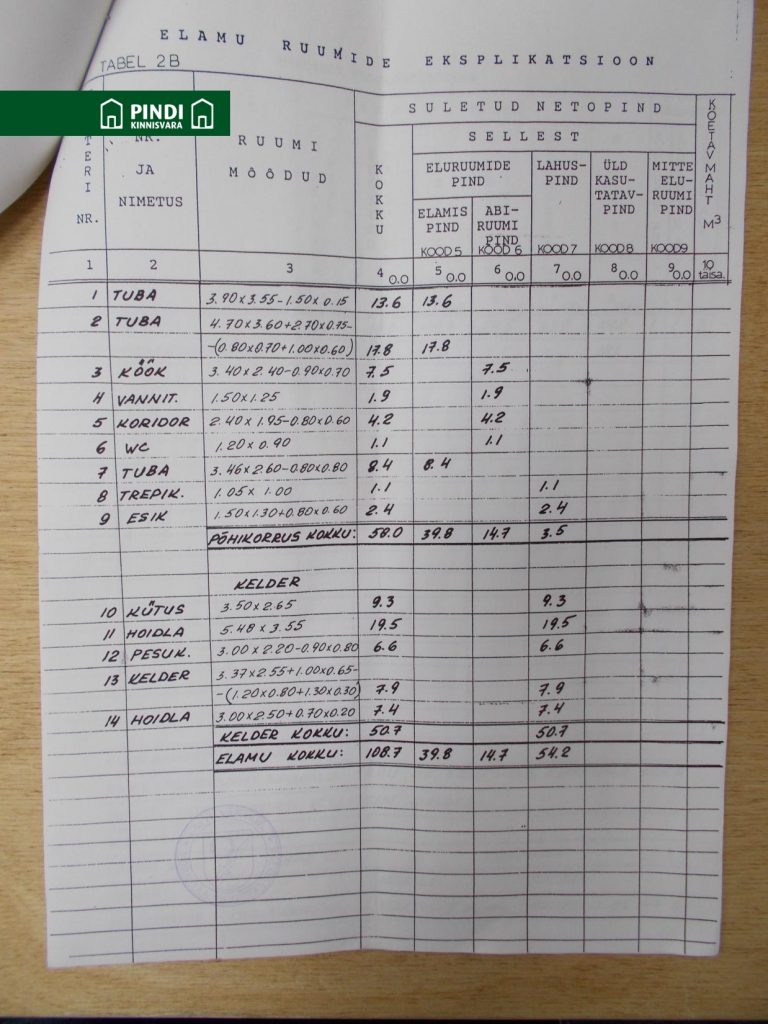 ELAMU RUUMIDE EKSPLIKATSIOON
TABEL 2B
PINDI
KINNISVARA
TERI NR.
NR. JA NIMETUS
RUUMI MÕÕDUD
SULETUD NETOPIND
KÖETAV MAHT M3
KOKKU
SELLEST
ELURUUMIDE PIND
LAHUS-PIND
ÜLD KASU-TATAV-PIND
MITTE ELU-RUUMI PIND
ELAMIS PIND
ABI-RUUMI PIND
KOOD 5 KOOD 6 KOOD 7 KOOD 8 KOOD 9
1 2 3 4 0.0 5 0.0 6 0.0 7 0.0 8 0.0 9 0.0 10 täisa.
1 TUBA 3.90x3.55-1.50x0.15 13.6 13.6
2 TUBA 4.70x3.60+2.70x0.75-
-(0.80x0.70+1.00x0.60) 17.8 17.8
3 KÖÖK 3.40x2.40-0.90x0.70 7.5 7.5
4 VANNIT. 1.50x1.25 1.9 1.9
5 KORIDOR 2.40x1.95-0.80x0.60 4.2 4.2
6 WC 1.20x0.90 1.1 1.1
7 TUBA 3.46x2.60-0.80x0.80 8.4 8.4
8 TREPIK. 1.05x1.00 1.1 1.1
9 ESIK 1.50x1.30+0.80x0.60 2.4 2.4
PÕHIKORRUS KOKKU: 58.0 39.8 14.7 3.5
KELDER
10 KÜTUS 3.50x2.65 9.3 9.3
11 HOIDLA 5.48x3.55 19.5 19.5
12 PESUK. 3.00x2.20-0.90x0.80 6.6 6.6
13 KELDER 3.37x2.55+1.00x0.65-
-(1.20x0.80+1.30x0.30) 7.9 7.9
14 HOIDLA 3.00x2.50+0.70x0.20 7.4 7.4
KELDER KOKKU: 50.7 50.7
ELAMU KOKKU: 108.7 39.8 14.7 54.2